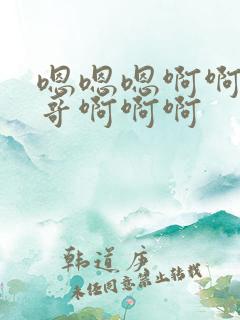 嗯嗯嗯啊啊
哥啊啊啊
韩道庚
未经同意禁止转载